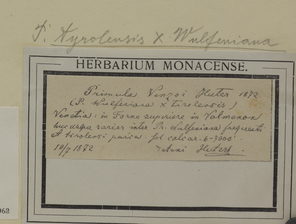 P. tyrolensis x Wulfeniana
HERBARIUM MONACENSE.
Primula Venzoi Huter 1872
(P. Wulfeniana x tirolensis)
Venetia: in Forno superiore in Valmenon
huc usque rarior inter Pr. Wulfeniana
et tirolensi sol calcar. 6-7000'
10/7 1872 Huter